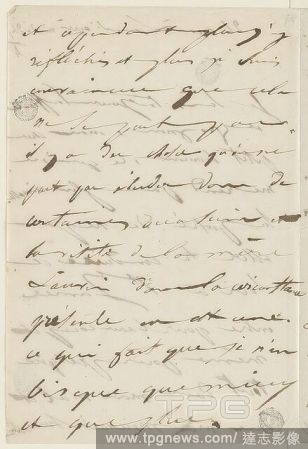 et cependant plus j'y
réfléchis et plus je suis
convaincue que cela
ne se peut pas
il y a des choses qu'on ne
peut pas éluder dans de
certaines occasions et
la visite de la mère
dans la circonstance
présente en est une
ce qui fait que je n'en
bisque que mieux
et que plus.
TPG
www.tpgnews.com/達志影像